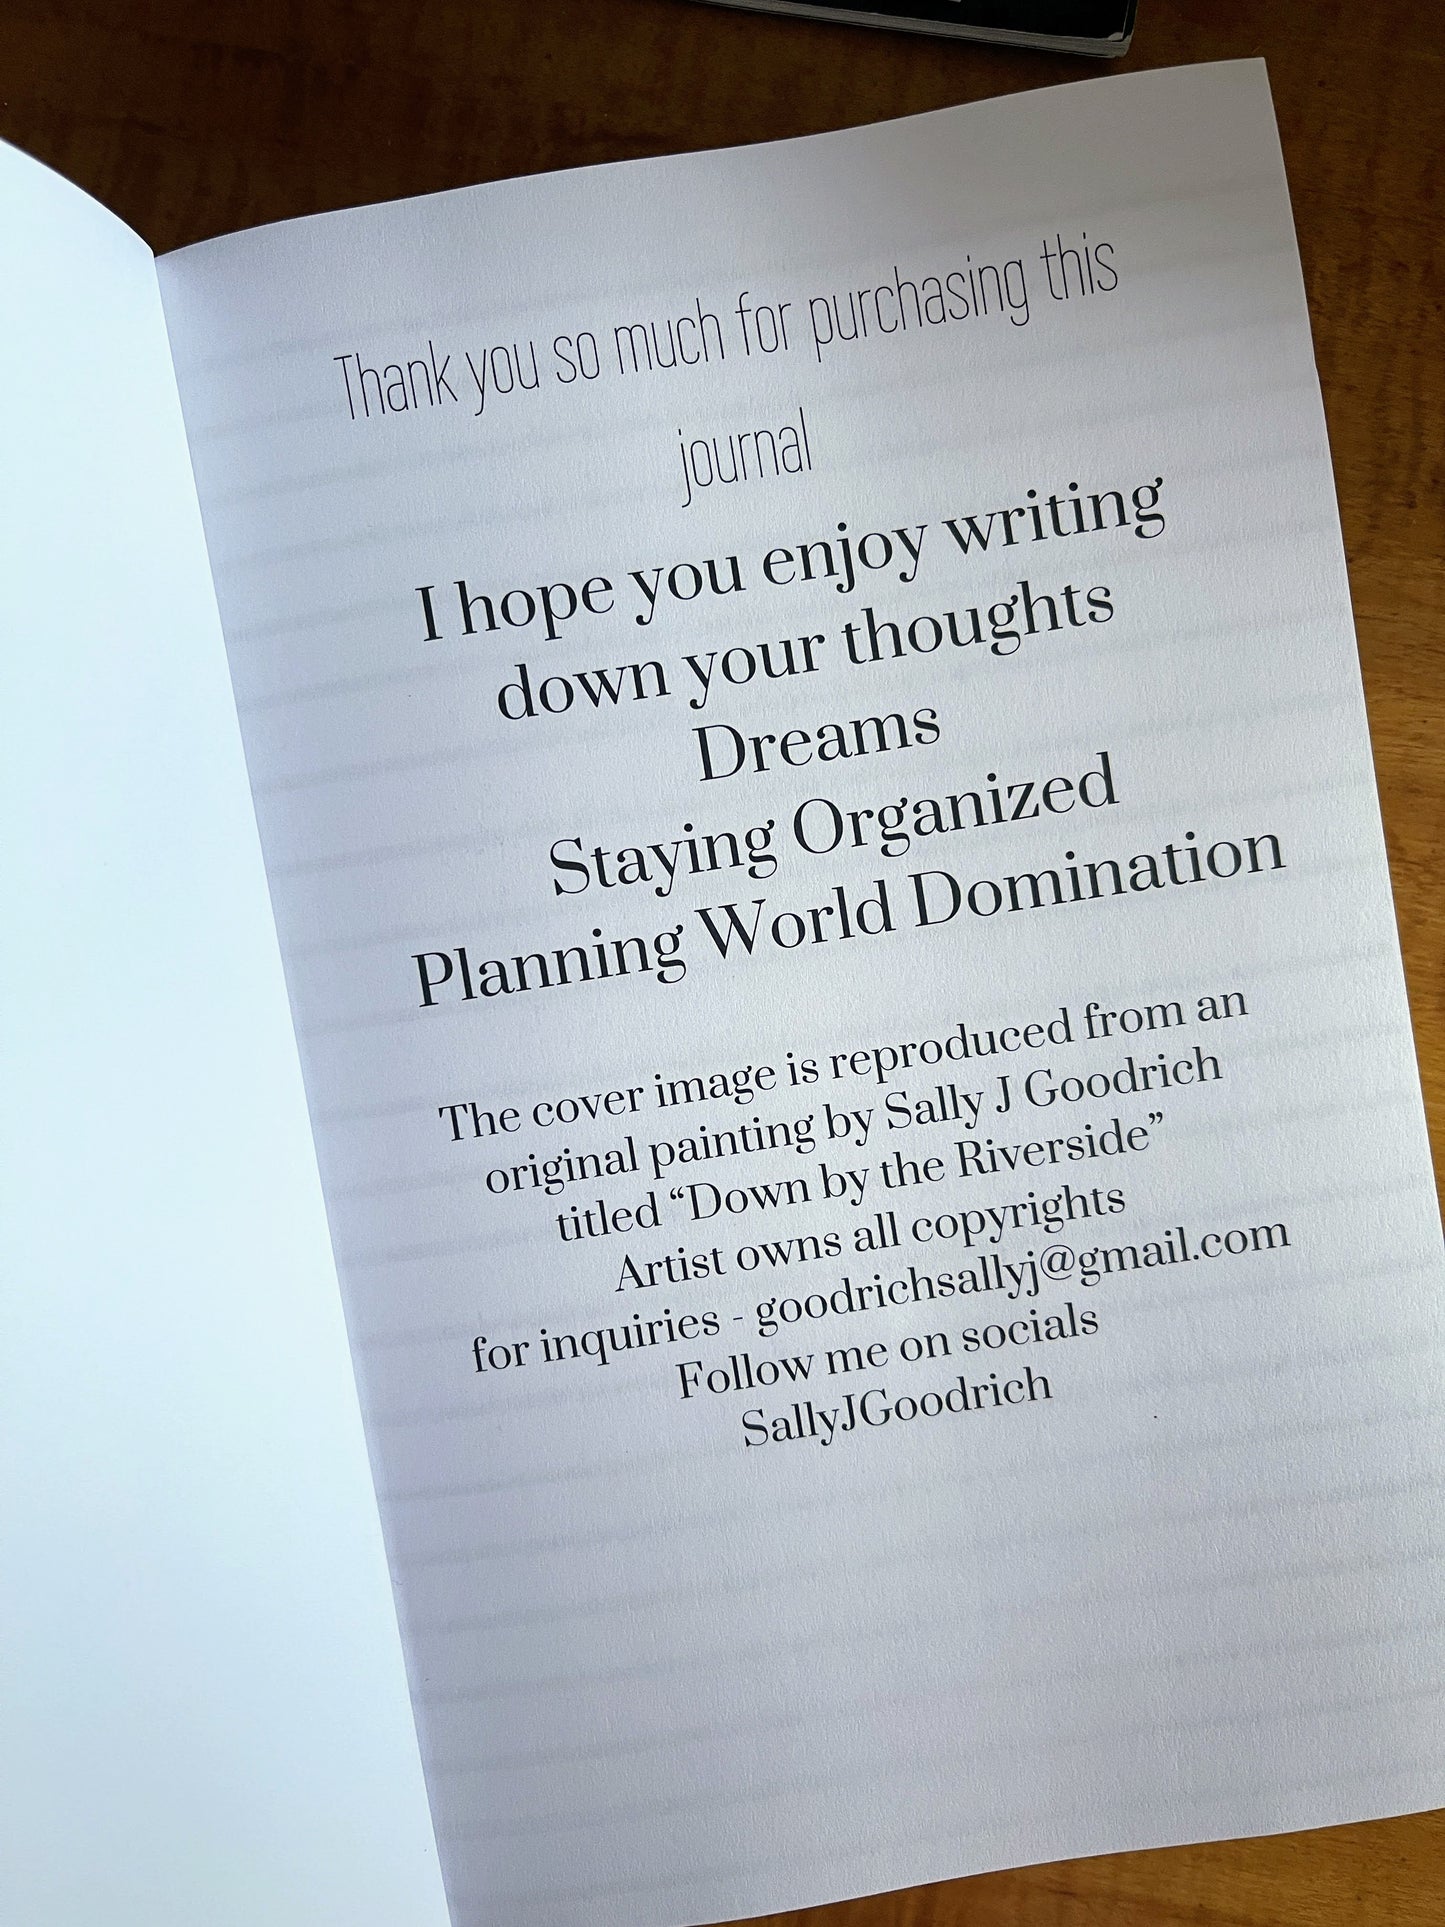 Thank you so much for purchasing this
journal
I hope you enjoy writing
down your thoughts
Dreams
Staying Organized
Planning World Domination
The cover image is reproduced from an
original painting by Sally J Goodrich
titled “Down by the Riverside”
Artist owns all copyrights
for inquiries - goodrichsallyj@gmail.com
Follow me on socials
SallyJGoodrich